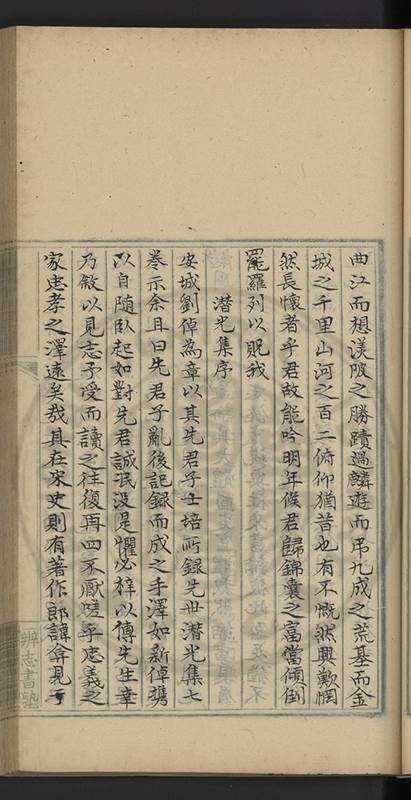 曲江而想渼陂之勝蹟過麟遊而弔九成之荒基而金
城之千里山河之百二俯仰猶昔也有不慨然興歎惘
然長懷者乎君故能吟明年候君歸錦囊之富當傾倒
羅列以貺我
潛光集序
安城劉倬為章以其先君子士培所録先世潛光集七
巻示余且曰先君子亂後記録而成之手澤如新倬攜
以自隨臥起如對先君誠泯没是懼必梓以傳先生幸
乃敘以見志予受而讀之往復再四不厭嗟乎忠義之
家忠孝之澤遠矣哉其在宋史則有著作郎諱弇見于
辨志書塾